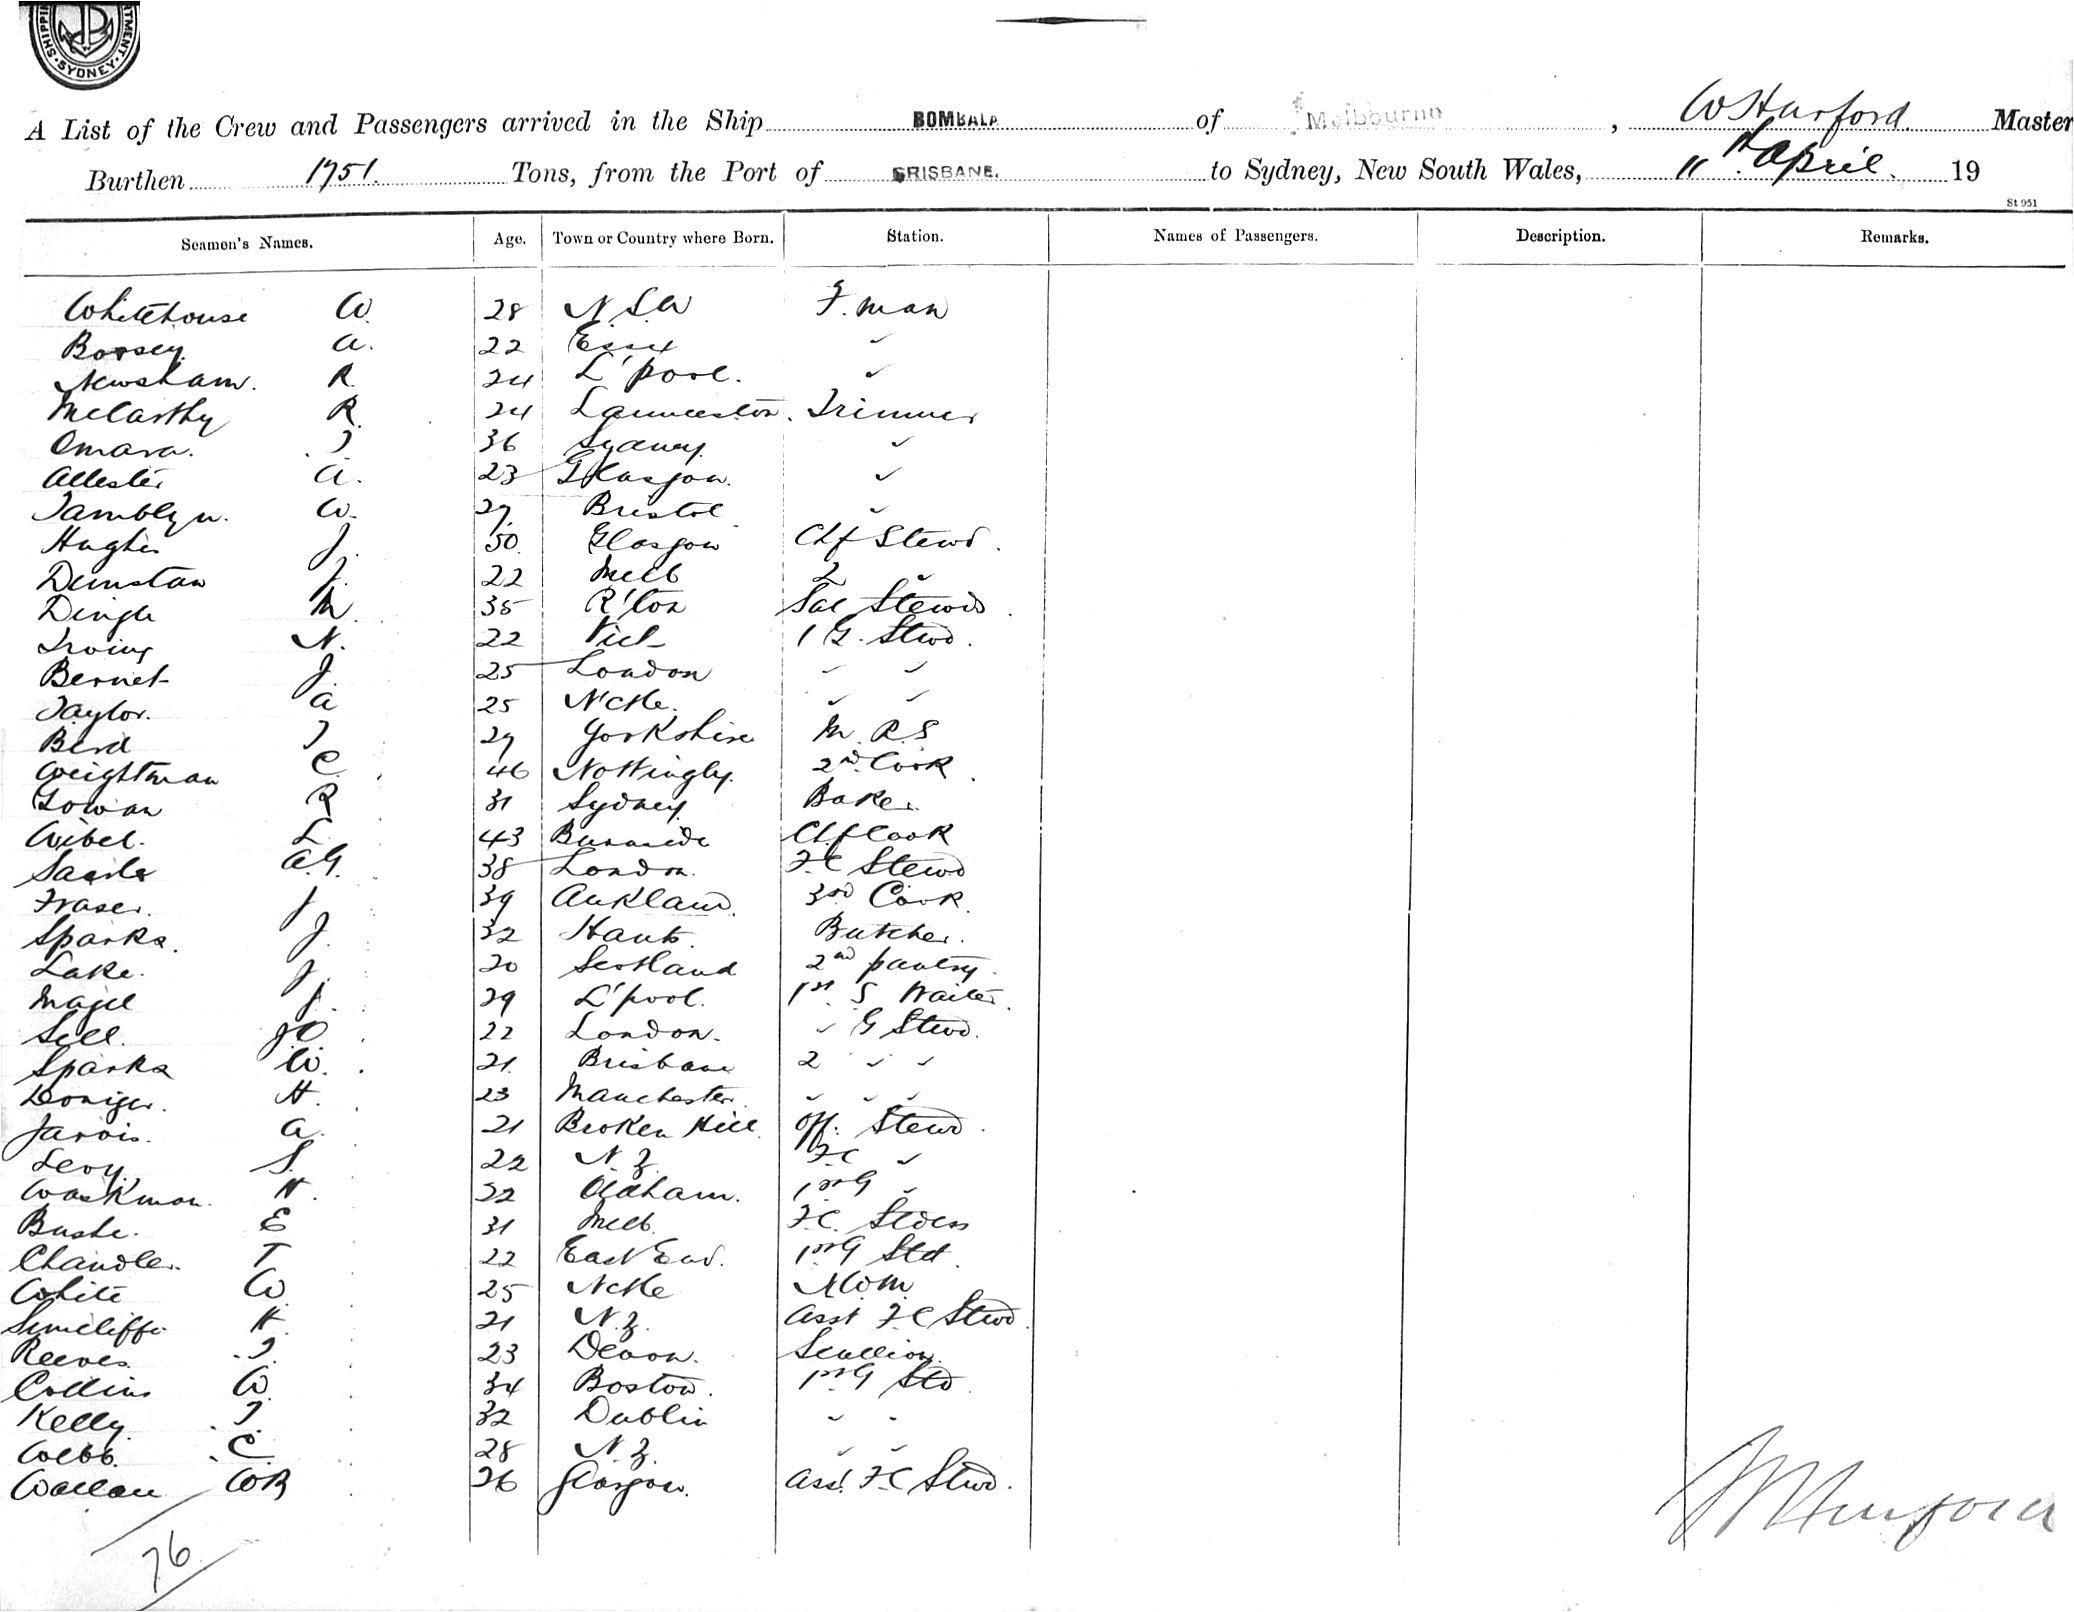 SHIPPING DEPARTMENT. SYDNEY.
A List of the Crew and Passengers arrived in the Ship BOMBALA of Melbourne, W Hurford Master
Burthen 1751. Tons, from the Port of BRISBANE. to Sydney, New South Wales, 11th April. 19
St 951
Seamen's Names. Age. Town or Country where Born. Station. Names of Passengers. Description. Remarks.
Whitehouse W. 28 N.S.W F. man
A. 22 Essex ✓
Newsham. R. 24 L'pool. ✓
McCarthy R. 24 Launceston. Trimmer
Omara. J 36 Sydney. ✓
Allester A. 23 Glasgow. ✓
Tamblyn. W. 27. Bristol ✓
Hughes J. 50. Glasgow Chf Stewd.
Dunstan J. 22 Melb 2 ✓
Dingle M. 35 R'ton Sal Stewds.
Irving N. 22 Vict 1 G. Stwd.
Bernet J. 25 London ✓ ✓
Taylor. A 25 N'Ctle. ✓ ✓
Bird J 27 Yorkshire M. R. S
Weightman C. 46 2nd Cook.
Gowan R 31 Sydney. Baker.
Wibel. L 43 Chf Cook
A.G. 38 London. F.C Stewd
Fraser. J 39 Aukland. 3rd Cook.
Sparks. J. 32 Hants. Butcher.
Lake. J. 20 Scotland 2nd pantry.
J. 29 L'pool. 1st S Waiter.
Sell. 22 London. ✓ G Stewd.
Sparks W. 21. Brisbane 2 ✓ ✓
H. 23 Manchester. ✓ ✓ ✓
Jarvis. A. 21 Broken Hill. Off. Stewd.
Levy. S. 22 N.Z. F.C ✓
Waskman. H. 22 Oldham. 1st G ✓
Bushe. E 31 Melb. F.C. Stdess
Chandler. T 22 East End. 1st G Std.
White W. 25 NCtle
H. 21 N.Z. Asst F C Stwd.
Reeves. J. 23 Devon. Scullion.
Collins W. 34 Boston. 1st G Std.
Kelly. J. 32 Dublin ✓ -
Webb. C. 28 N.Z. ✓ ✓
Wallau WR 26 Glasgow. Asst. F.C Stwd.
76
W Hurford